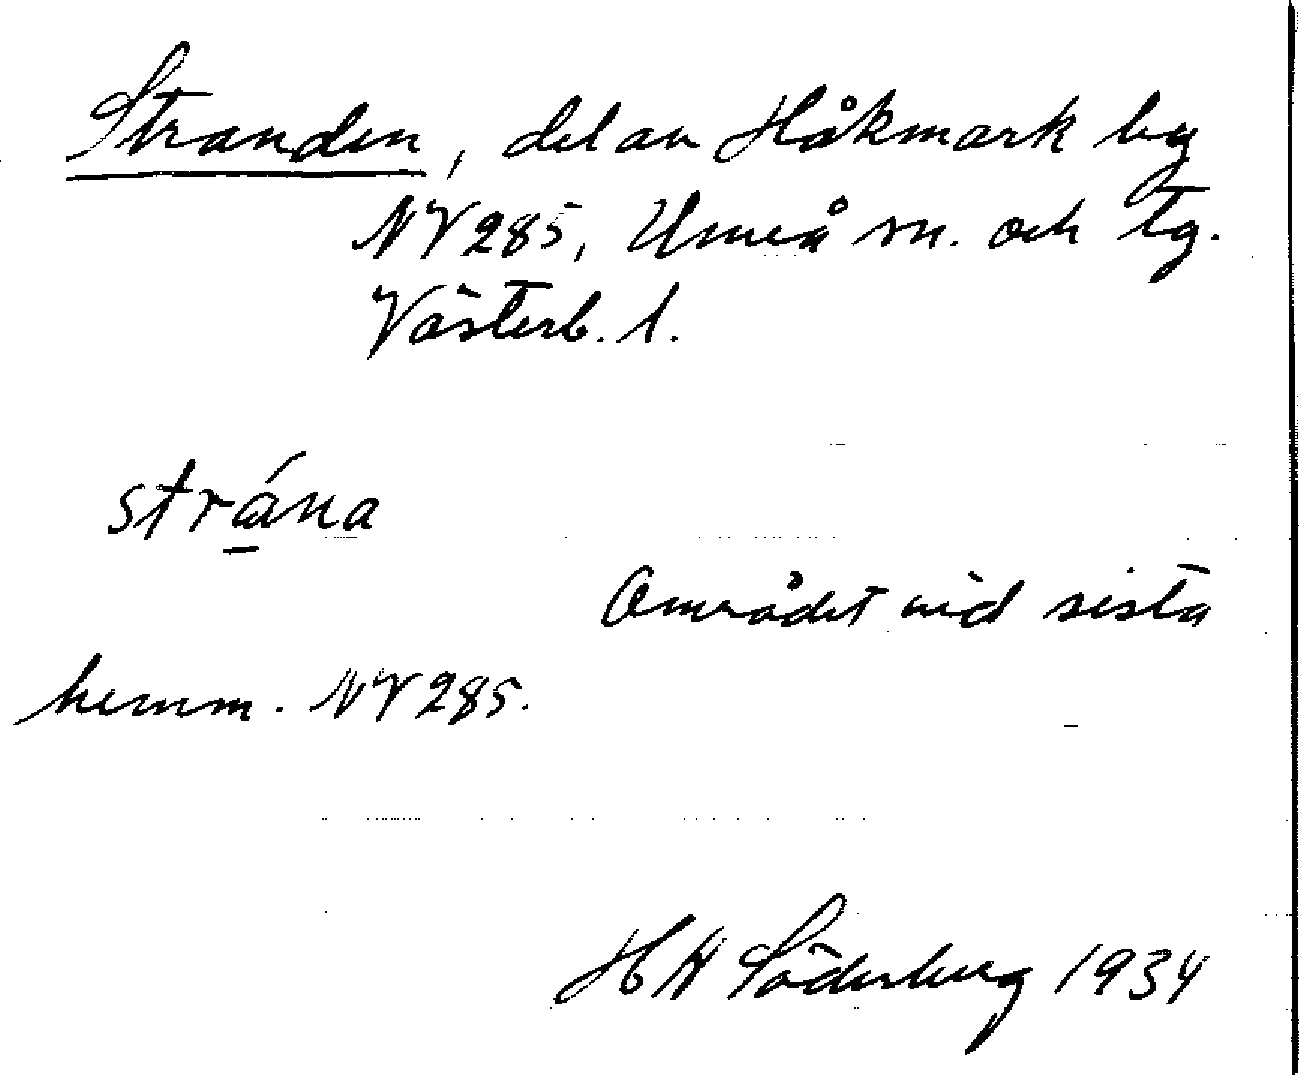 Stranden, del av Håkmark by
NV 285, Umeå sn. och tg.
Västerb. l.
strá̱na
Området vid sista
hemm. NV 285.
H W Söderberg 1934